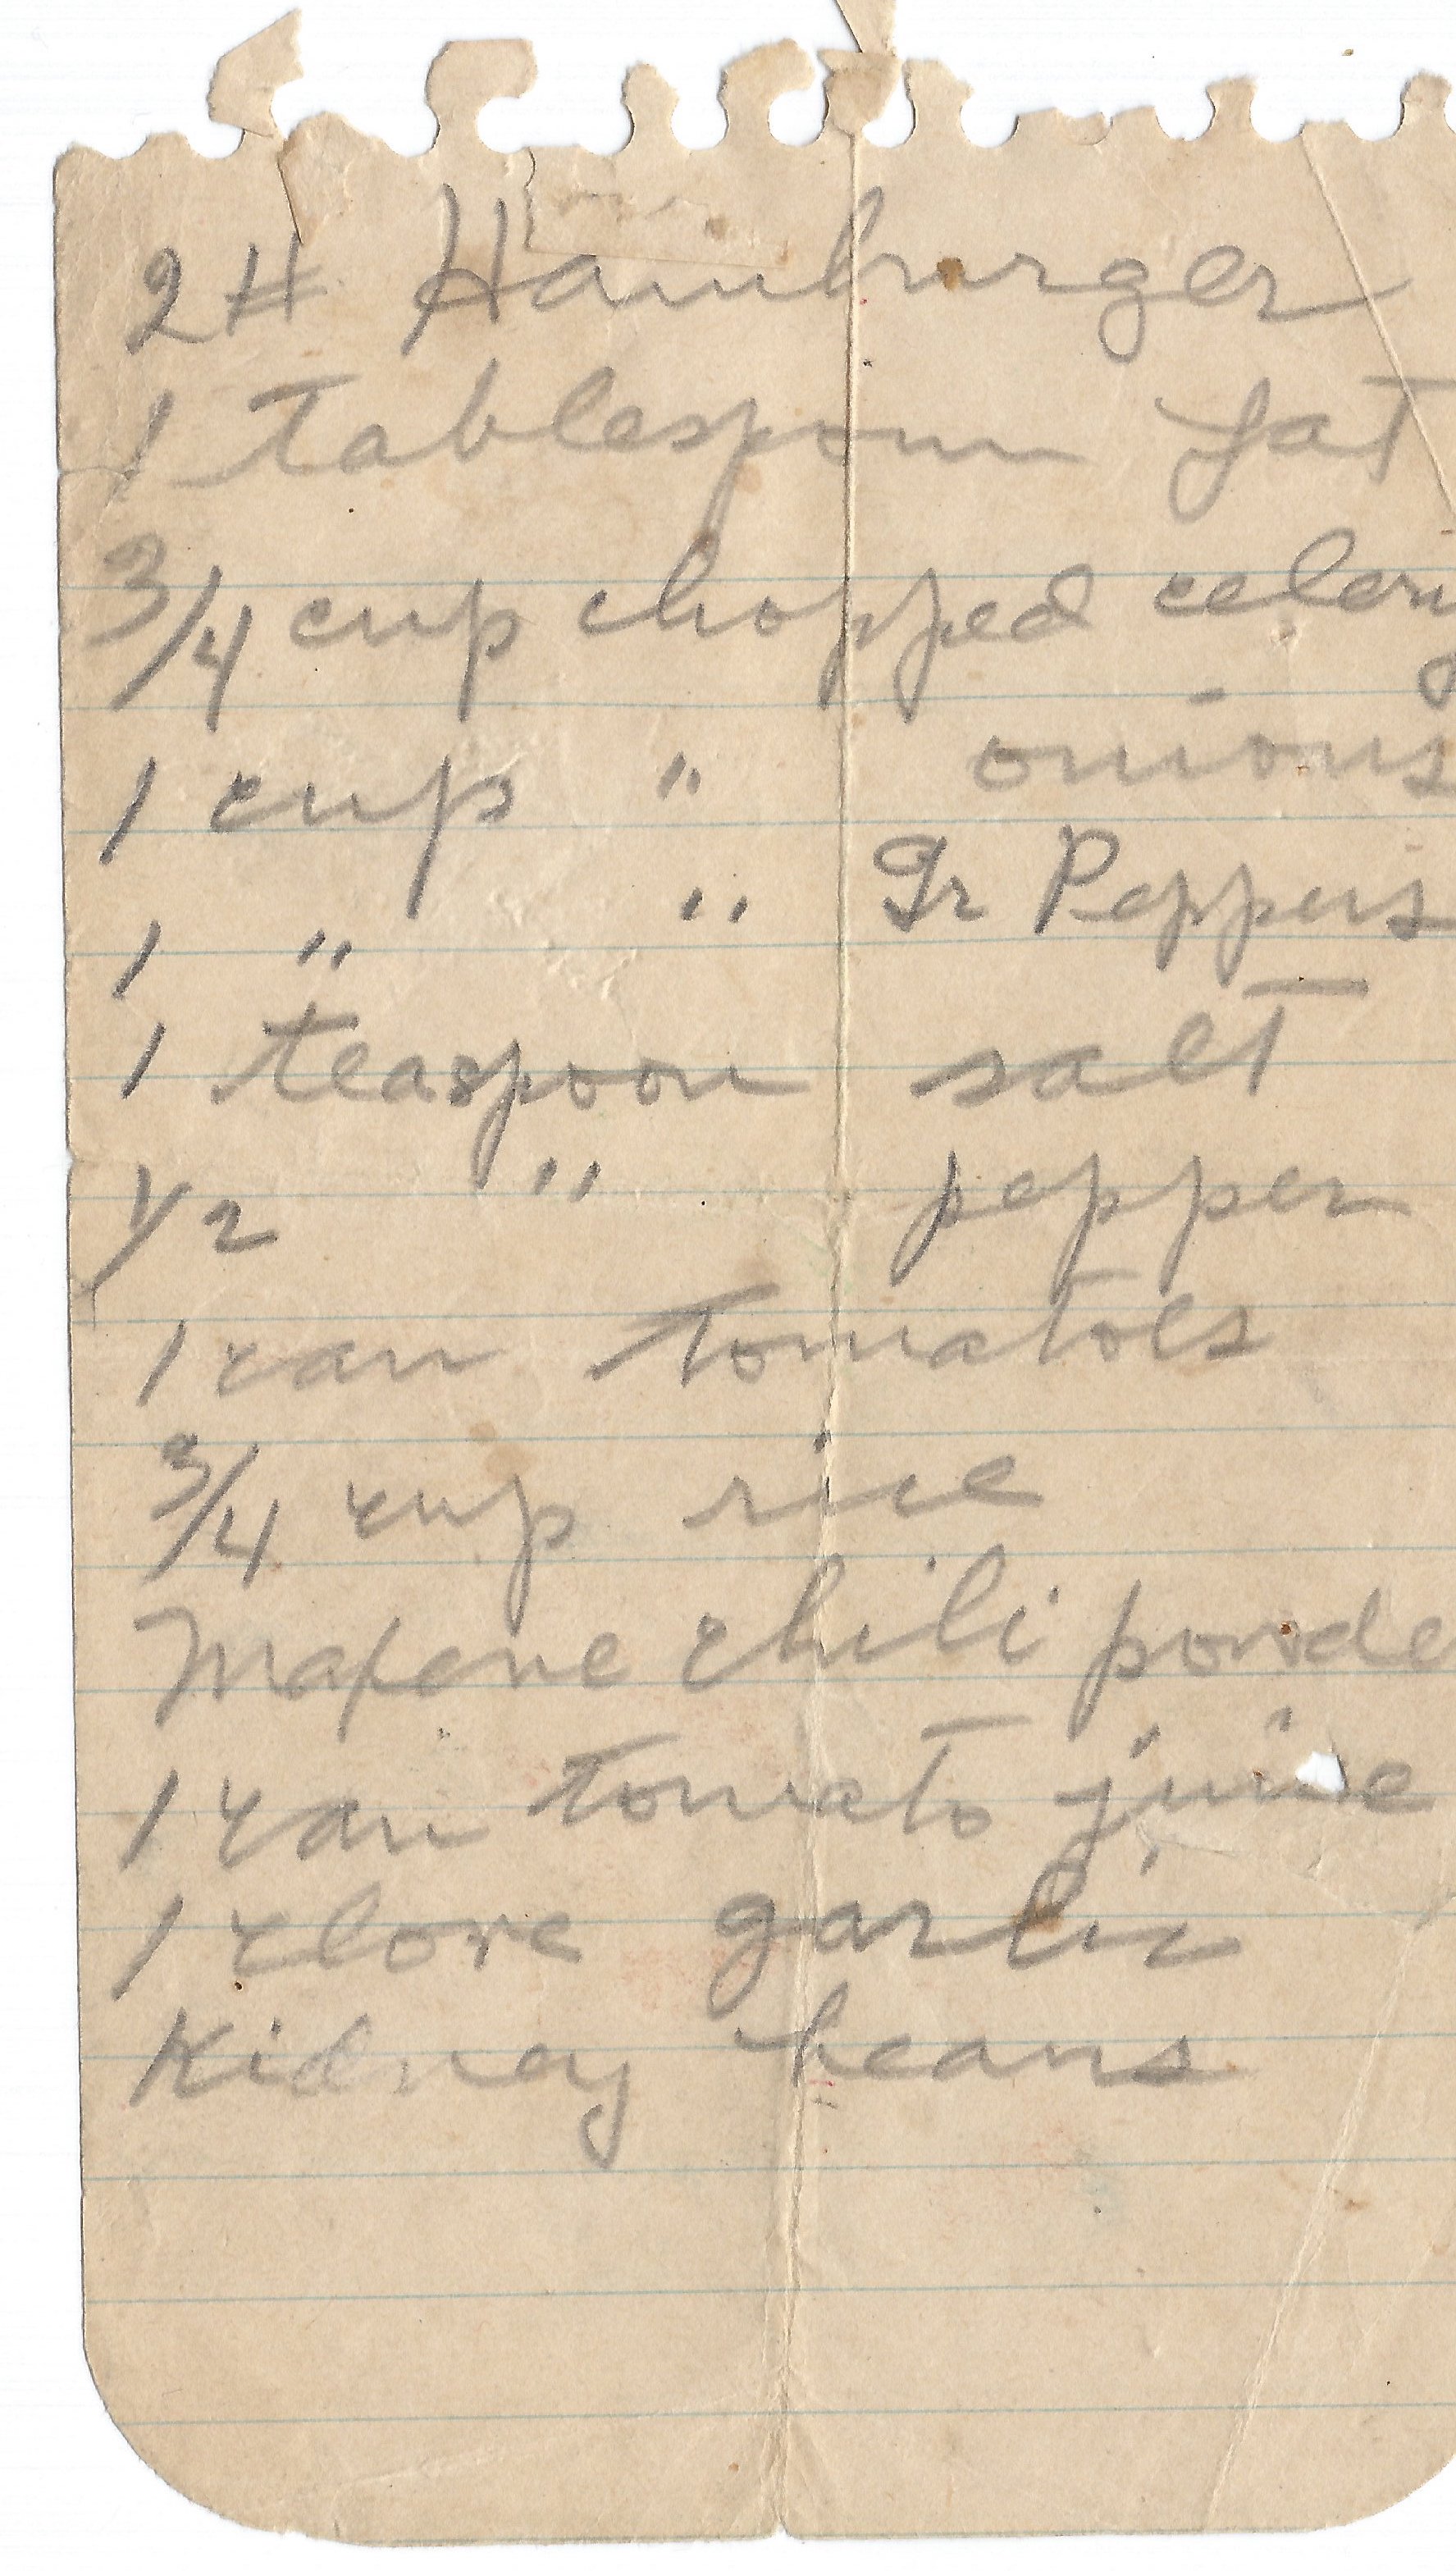 2# Hamburger
1 Tablespoon fat
3/4 cup chopped celery
1 cup " onions
1 " " Gr Peppers
1 teaspoon salt
1/2 " pepper
1 can Tomatoes
3/4 cup rice
Mexene chili powde
1 can tomato juice
1 clove garlic
Kidney beans